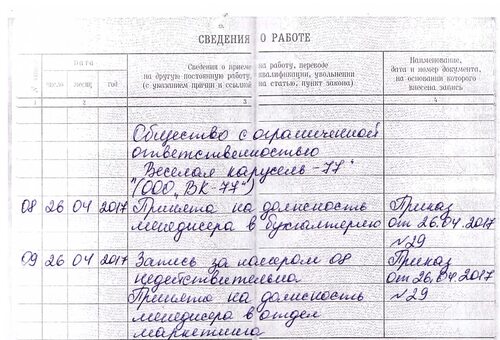 СВЕДЕНИЯ О РАБОТЕ
№ записи
Дата
число
месяц
год
Сведения о приеме на работу, переводе
на другую постоянную работу, квалификации, увольнении
(с указанием причин и ссылкой на статью, пункт закона)
Наименование,
дата и номер документа,
на основании которого
внесена запись
1 2 3 4
Общество с ограниченной
ответственностью
"Веселая карусель-77"
"(ООО "ВК-77")
08 26 04 2017 Принята на должность Приказ
менеджера в бухгалтерию от 26.04.2017
№29
09 26 04 2017 Запись за номером 08 Приказ
недействительна от 26.04.2017
Принята на должность №29
менеджера в отдел
маркетинга